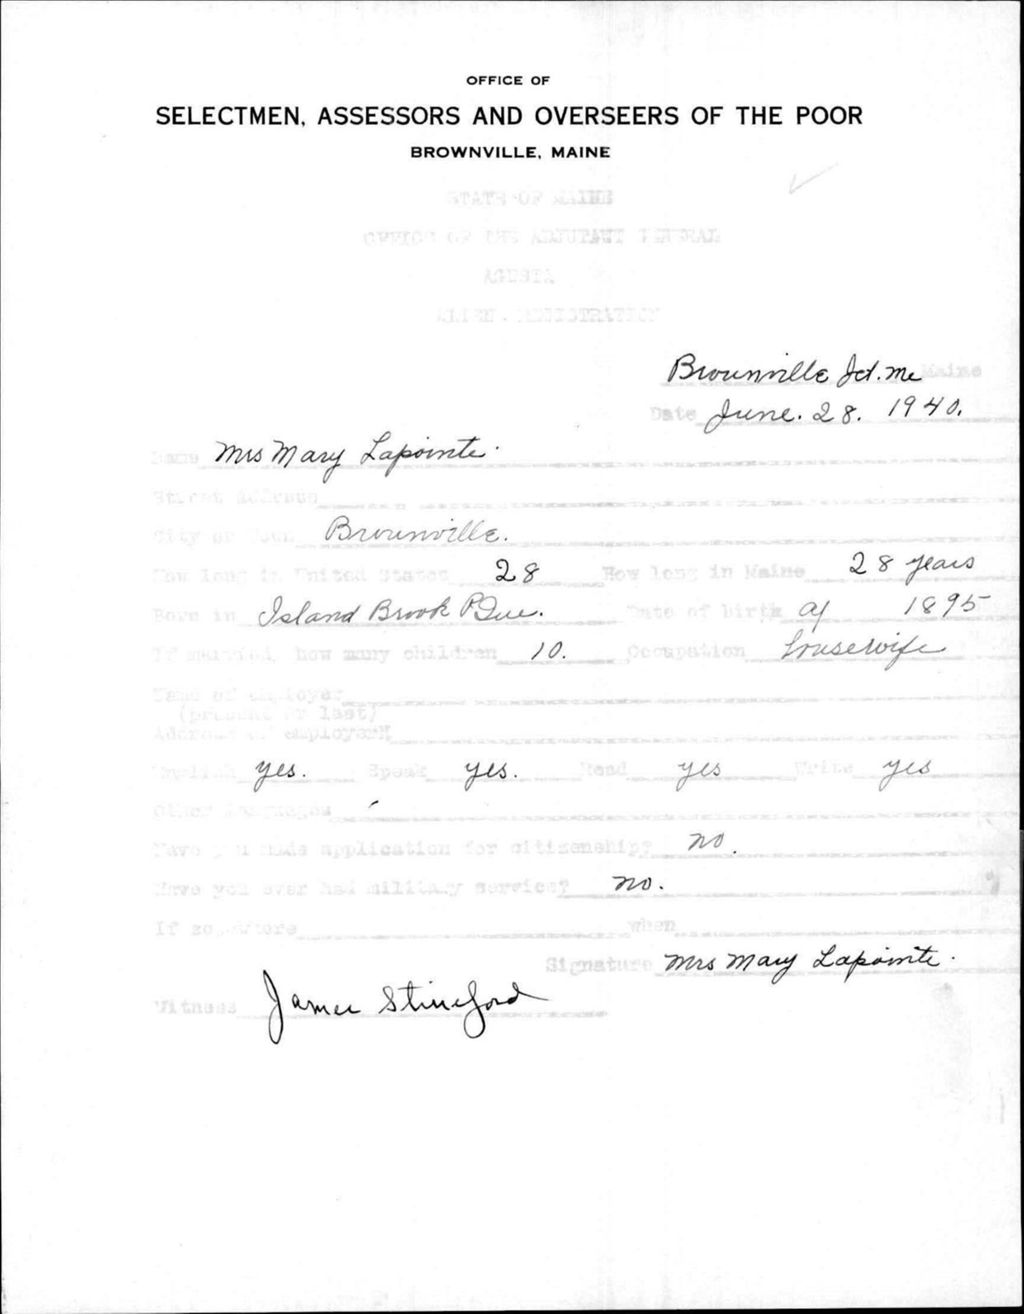 OFFICE OF
SELECTMEN, ASSESSORS AND OVERSEERS OF THE POOR
BROWNVILLE, MAINE
STATE OF MAINE
OFFICE OF THE ADJUTANT GENERAL
AGUSTA
ALIEN
Brownville Jct. Me Maine
Date June. 28. 1940.
Name Mrs Mary Lapointe.
Street Address
City or Town Brownville.
How long in United States 28 How long in Maine 28 years
Born in Island Brook P Que. Date of birth 1895
If married, how many children 10. Occupation housewife
Name of employer
(present or last)
Address of employer
English yes. Speak yes. Read yes Write yes
Other Languages -
Have you made application for citizenship? no.
Have you ever had military service? no.
If so, where when
Signature Mrs Mary Lapointe.
Witness James Stineford